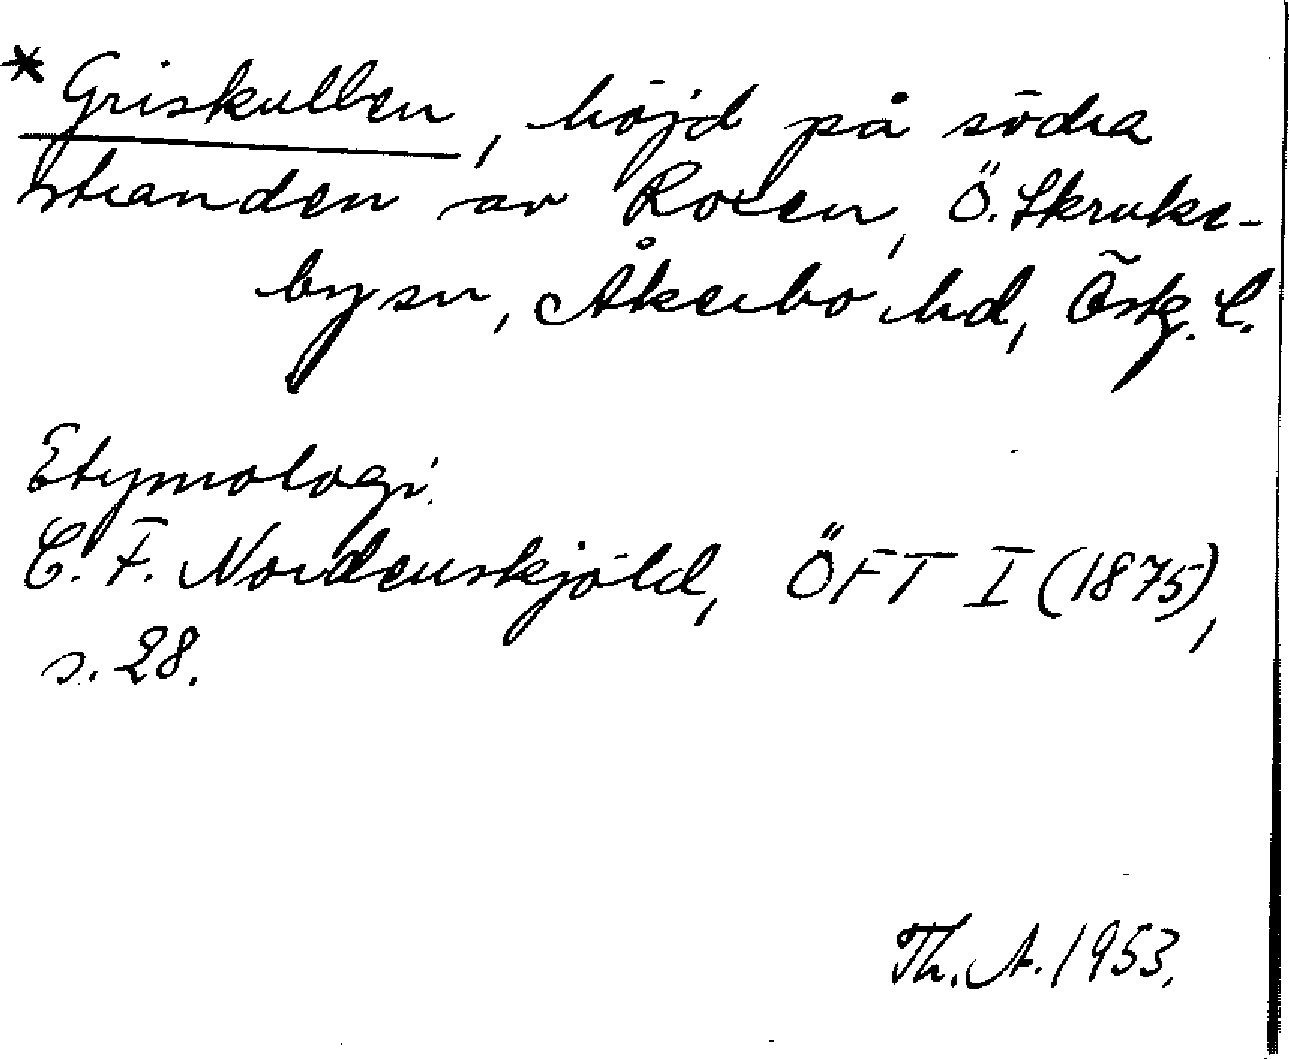 * Griskullen, höjd på södra
stranden av Roxen, Ö. Skruke-
by sn, Åkerbo hd, Östg. l.
Etymologi.
C. F. Nordenskjöld, ÖFT I (1875),
s. 28.
Th. A. 1953.